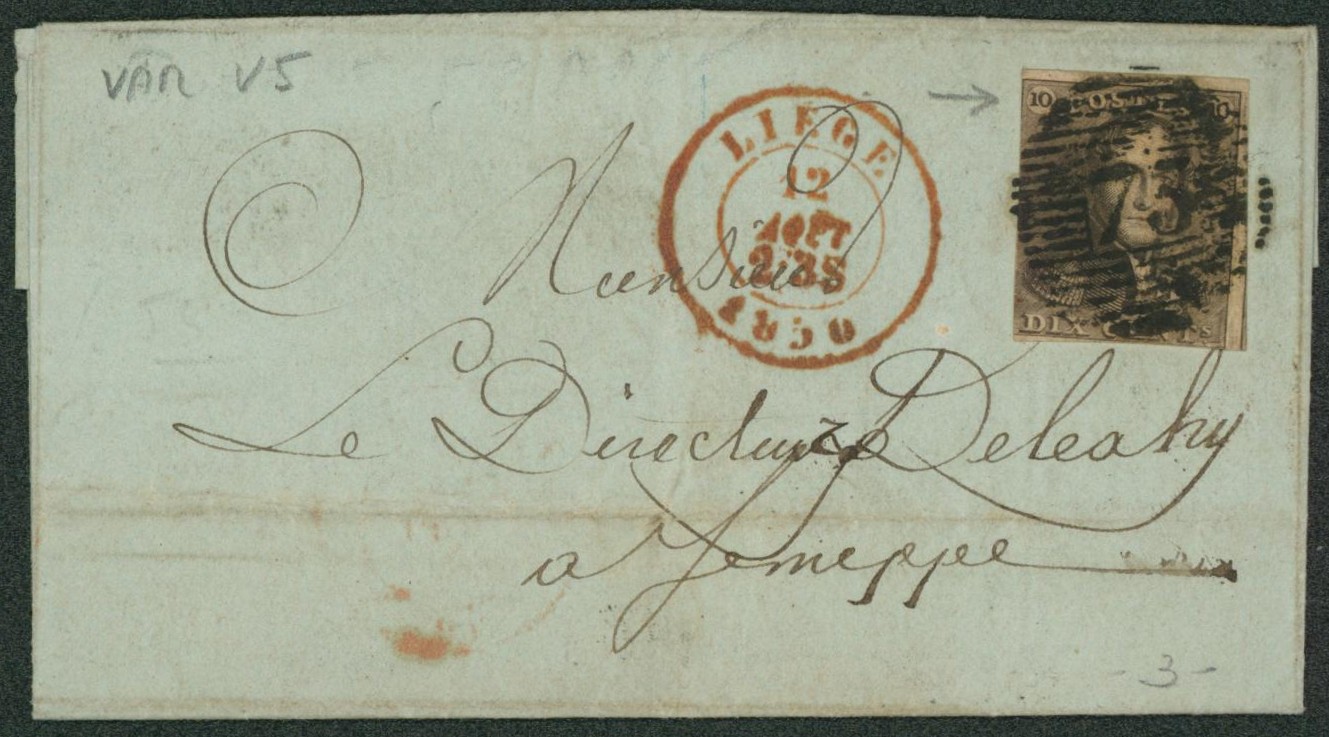 VAR V5
LIEGE
12
AOUT
1850
10 POSTES 10
DIX CENTS
Monsieur
Le Directeur Deleahy
a Jemeppe
- 3 -